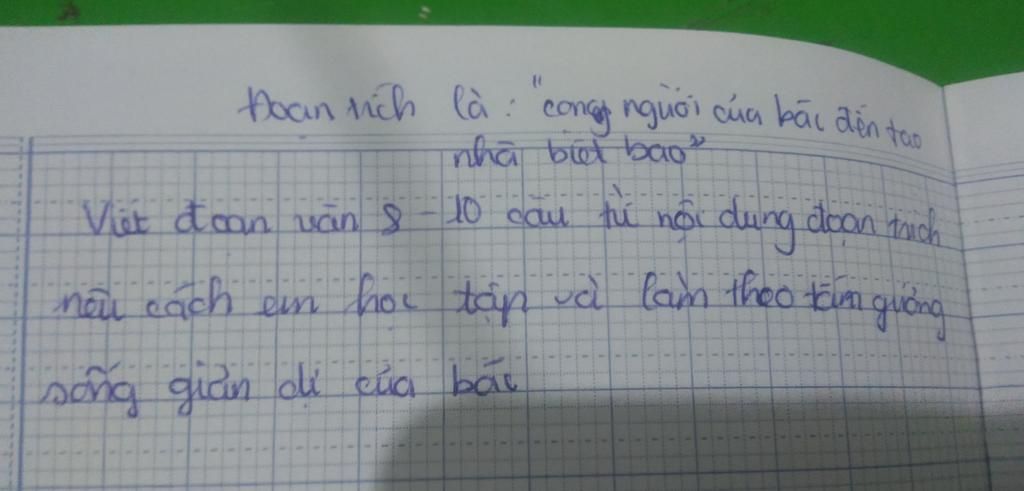 Đoạn trích là: "cong người của bác đến tao
nhã biết bao"
Viết đoạn văn 8 - 10 câu từ nội dung đoạn trích
nêu cách em học tập và làm theo tấm gương
sống giản dị của bác